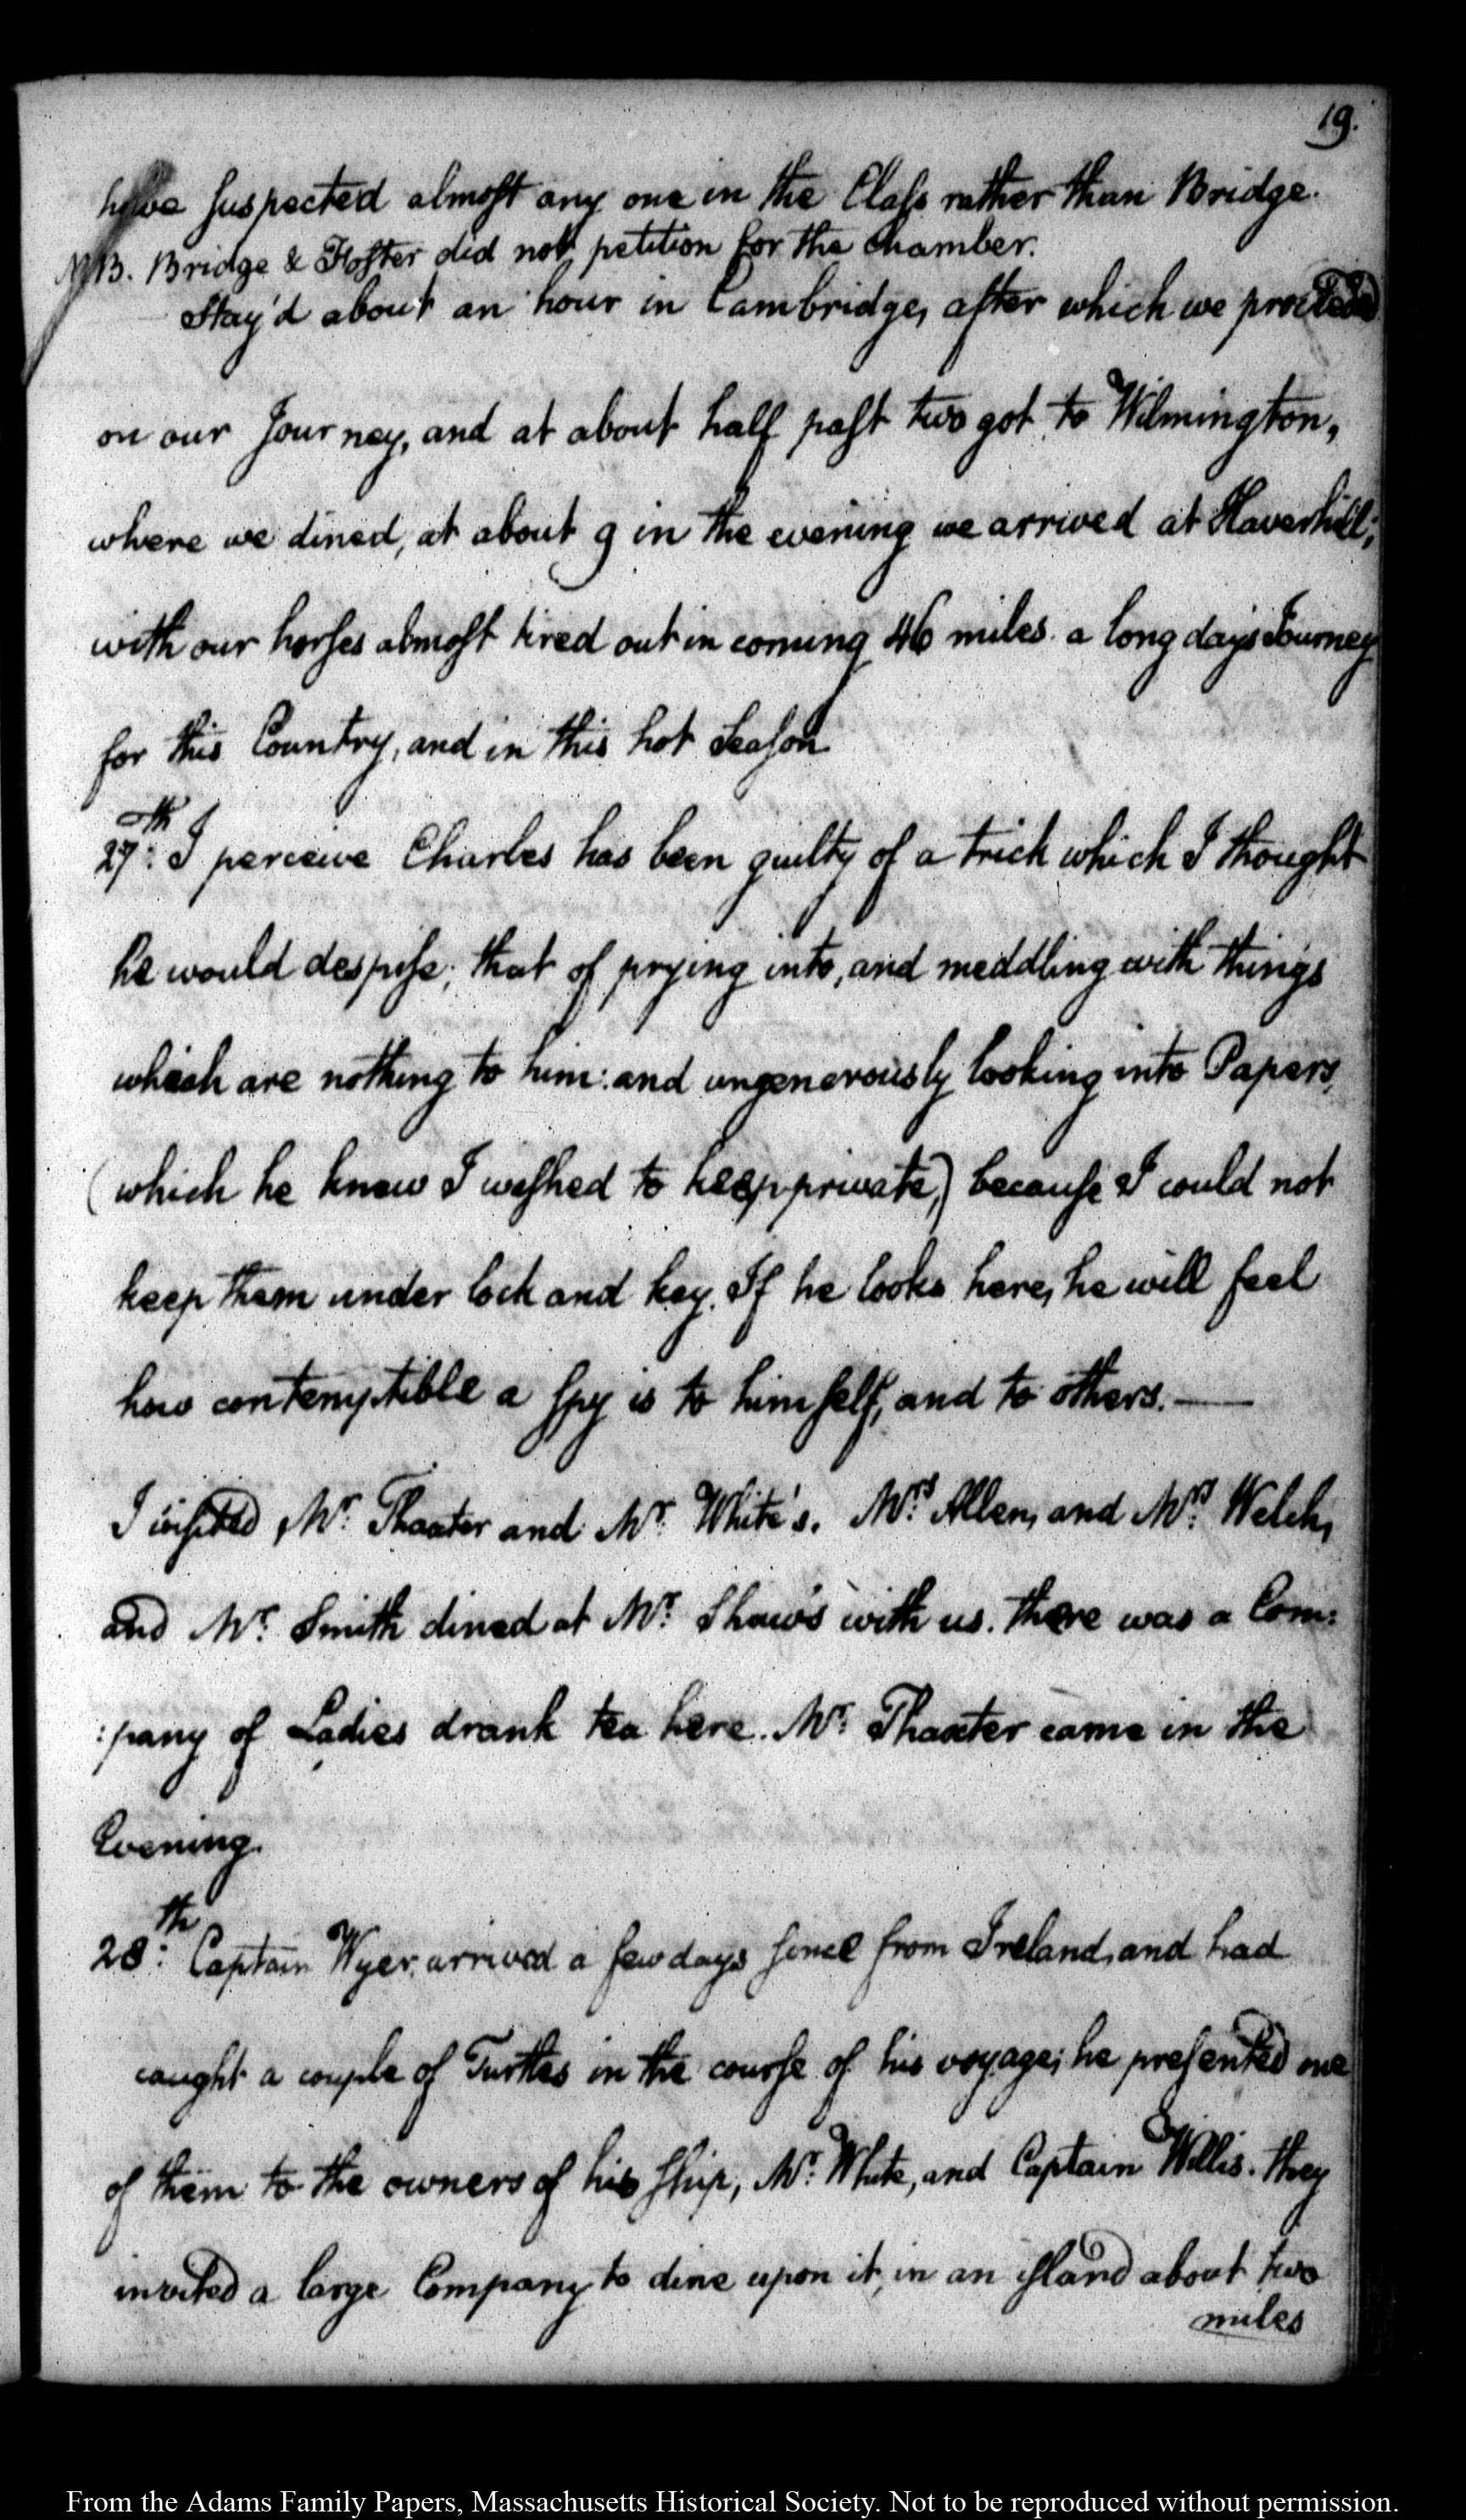 19.
have suspected almost any one in the Class rather than Bridge.
NB. Bridge & Foster did not petition for the Chamber.
Stay'd about an hour in Cambridge, after which we proceeded
on our Journey, and at about half past two got to Wilmington,
where we dined, at about 9 in the evening we arrived at Haverhill;
with our horses almost tired out in coming 46 miles. a long days Journey
for this Country, and in this hot Season
27th: I perceive Charles has been guilty of a trick which I thought
he would despise; that of prying into, and meddling with things
which are nothing to him: and ungenerously looking into Papers,
(which he knew I wished to keep private,) because I could not
keep them under lock and key. If he looks here, he will feel
how contemptible a spy is to himself, and to others.—
I visited Mr. Thaxter and Mr. White's. Mrs. Allen, and Mrs. Welch,
and Mr. Smith dined at Mr. Shaw's with us. there was a Com:
:pany of Ladies drank tea here. Mr. Thaxter came in the
Evening.
28th: Captain Wyer, arrived a few days since from Ireland, and had
caught a couple of Turtles in the course of his voyage; he presented one
of them to the owners of his ship, Mr. White, and Captain Willis. they
invited a large Company to dine upon it, in an island about two
miles
From the Adams Family Papers, Massachusetts Historical Society. Not to be reproduced without permission.